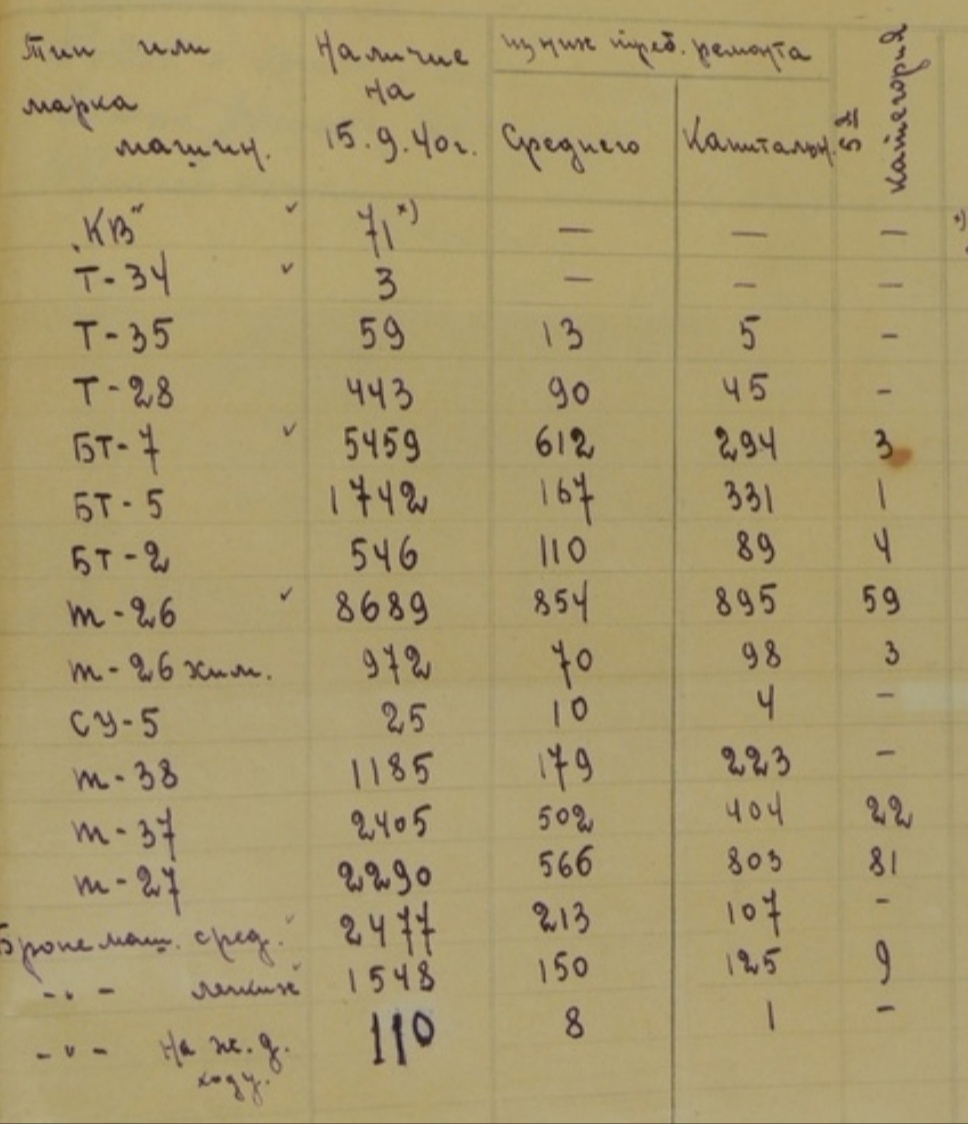 Тип или марка машин. Наличие на 15.9.40г. из них треб. ремонта Среднего Капитальн. 5я категория
"КВ" ✓ 71 х) — — —
Т-34 ✓ 3 — — —
Т-35 59 13 5 -
Т-28 443 90 45 -
БТ-7 ✓ 5459 612 294 3
БТ-5 1742 167 331 1
БТ-2 546 110 89 4
т-26 ✓ 8689 854 895 59
т-26 хим. 972 70 98 3
СУ-5 25 10 4 -
т-38 1185 179 223 -
т-37 2405 502 404 22
т-27 2290 566 803 81
Бронемаш. сред. ✓ 2477 213 107 -
-"- легких 1548 150 125 9
-"- на ж.д. ходу. 110 8 1 -